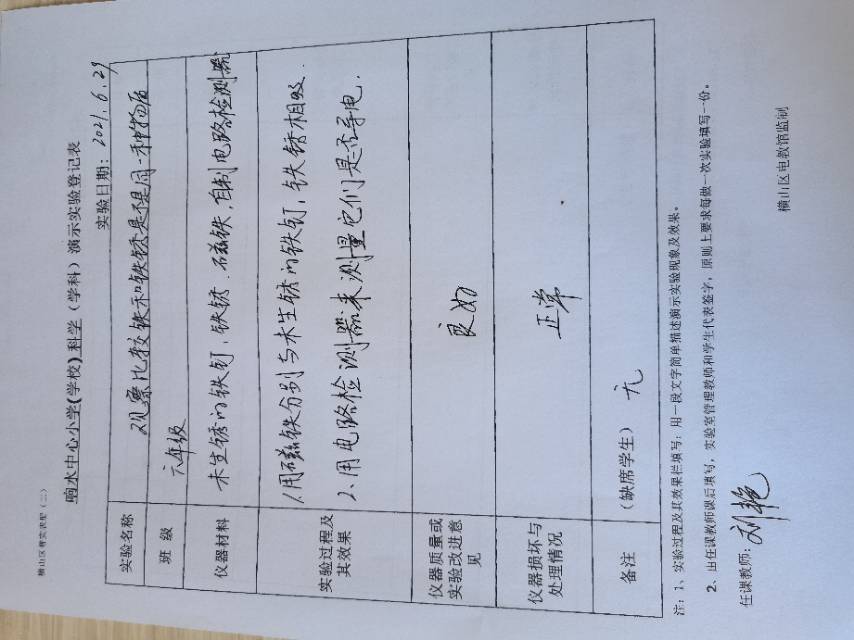 响水中心小学(学校)科学(学科)演示实验登记表
实验日期：2021.6.29
实验名称 观察比较铁和铁锈是不是同一种物质
班 级 六年级
仪器材料 未生锈的铁钉、铁锈、石磁铁,自制电路检测器
实验过程及其效果
1、用石磁铁分别与未生锈的铁钉,铁锈相吸.
2、用电路检测器来测量它们是否导电.
仪器质量或实验改进意见 良好
仪器损坏与处理情况 正常
备注 (缺席学生) 无
注：1、实验过程及其效果栏填写：用一段文字简单描述演示实验现象及效果。
2、由任课教师课后填写，实验室管理教师和学生代表签字，原则上要求每做一次实验填写一份。
任课教师：刘艳
横山区电教馆监制